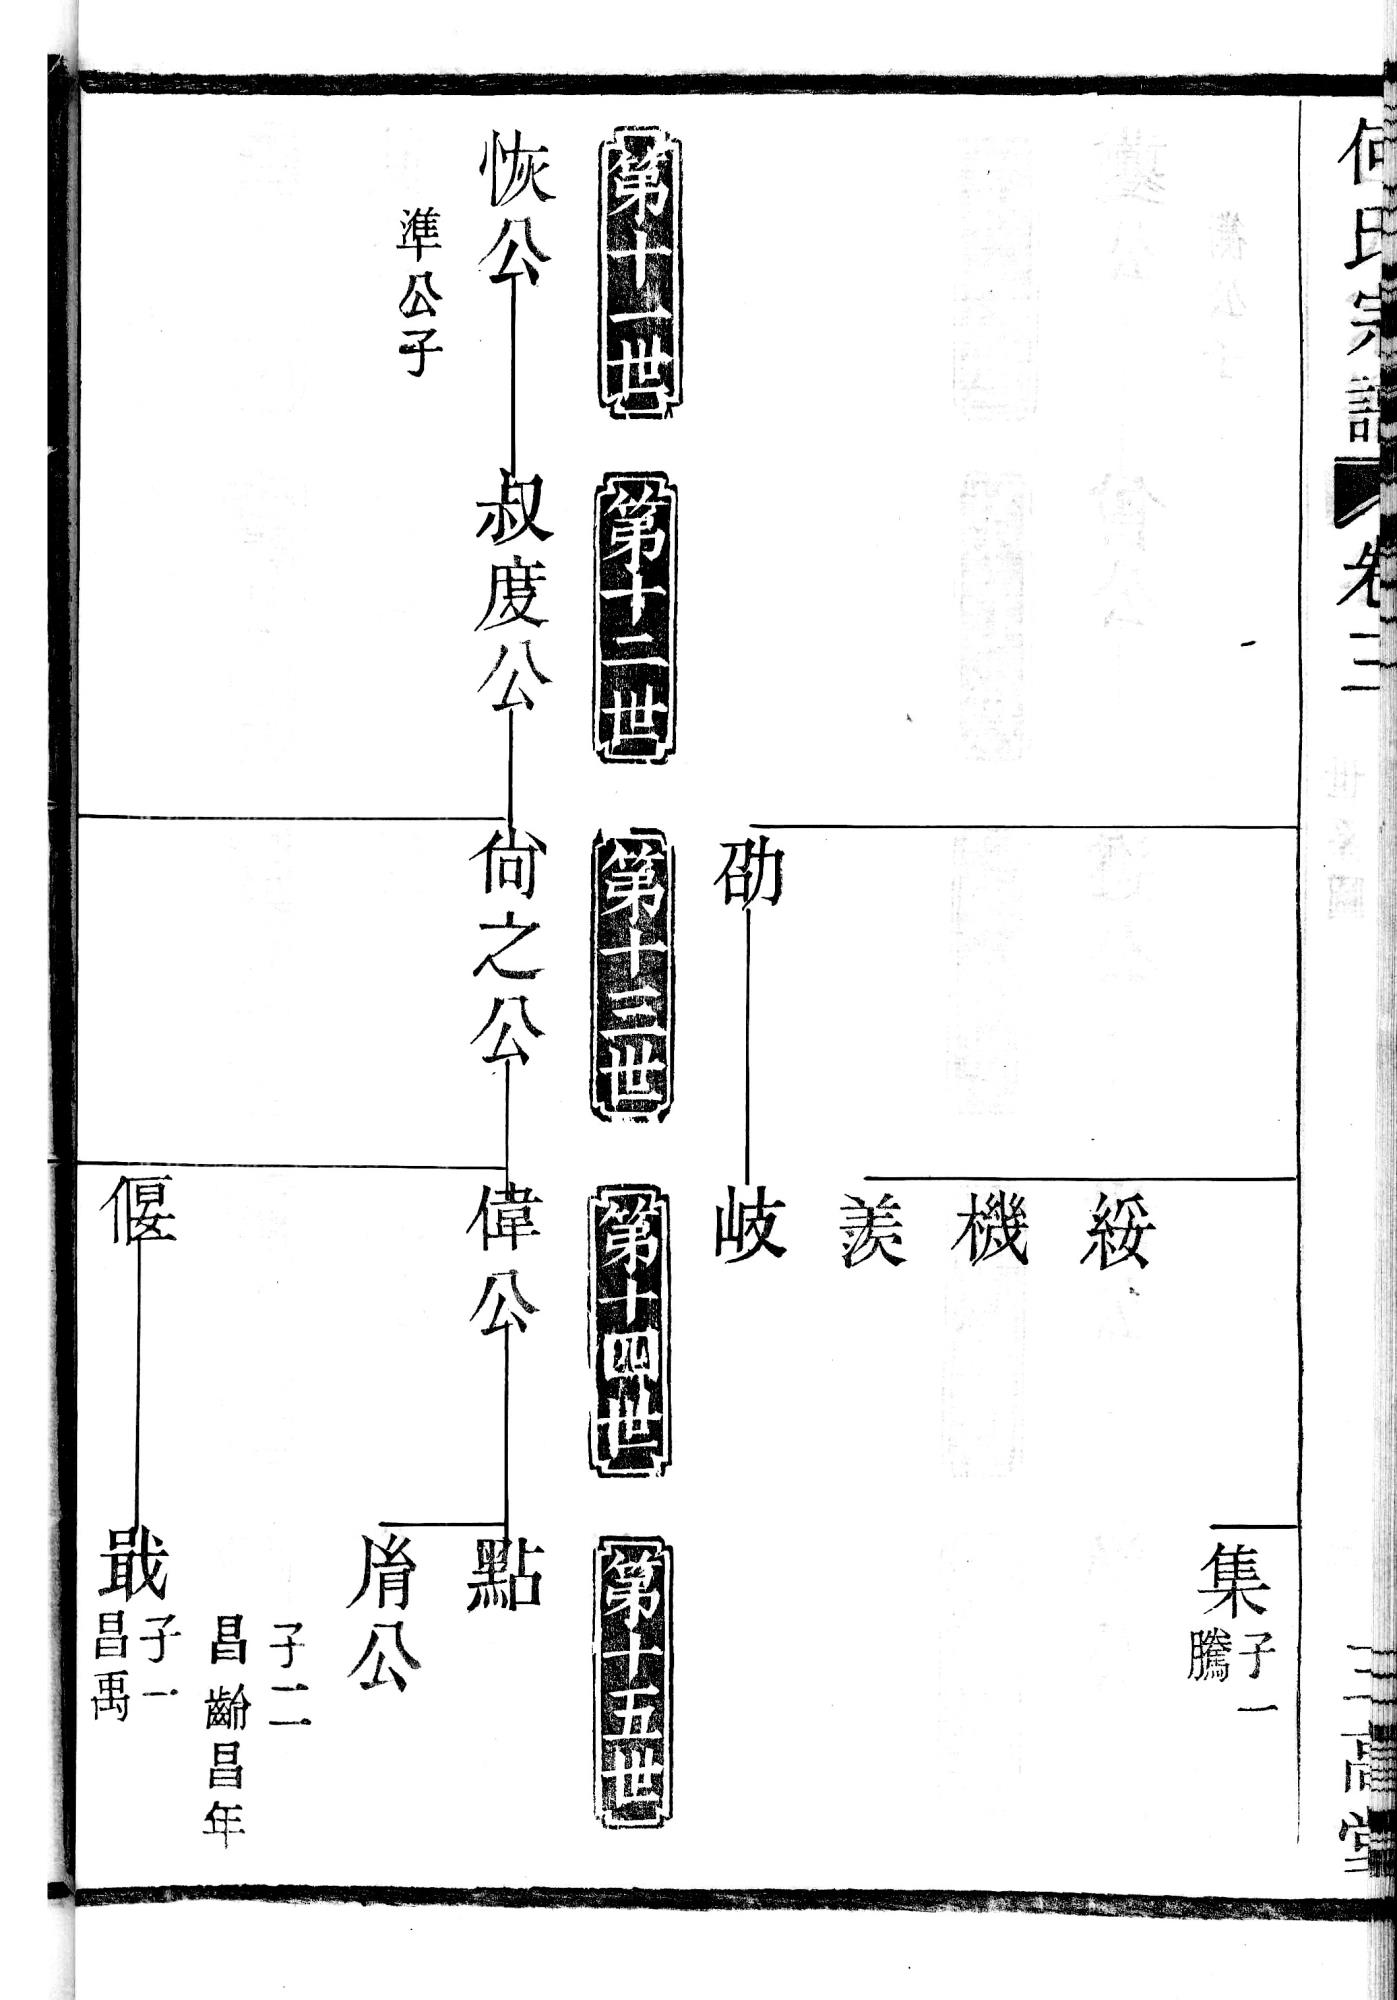 何氏宗譜
卷二
三高堂
集
子一
騰
綏
機
羨
劭
岐
第十一世
第十二世
第十三世
第十四世
第十五世
恢公
叔度公
尙之公
偉公
點
準公子
胤公
子二
昌齡昌年
偃
戢
子一
昌禹